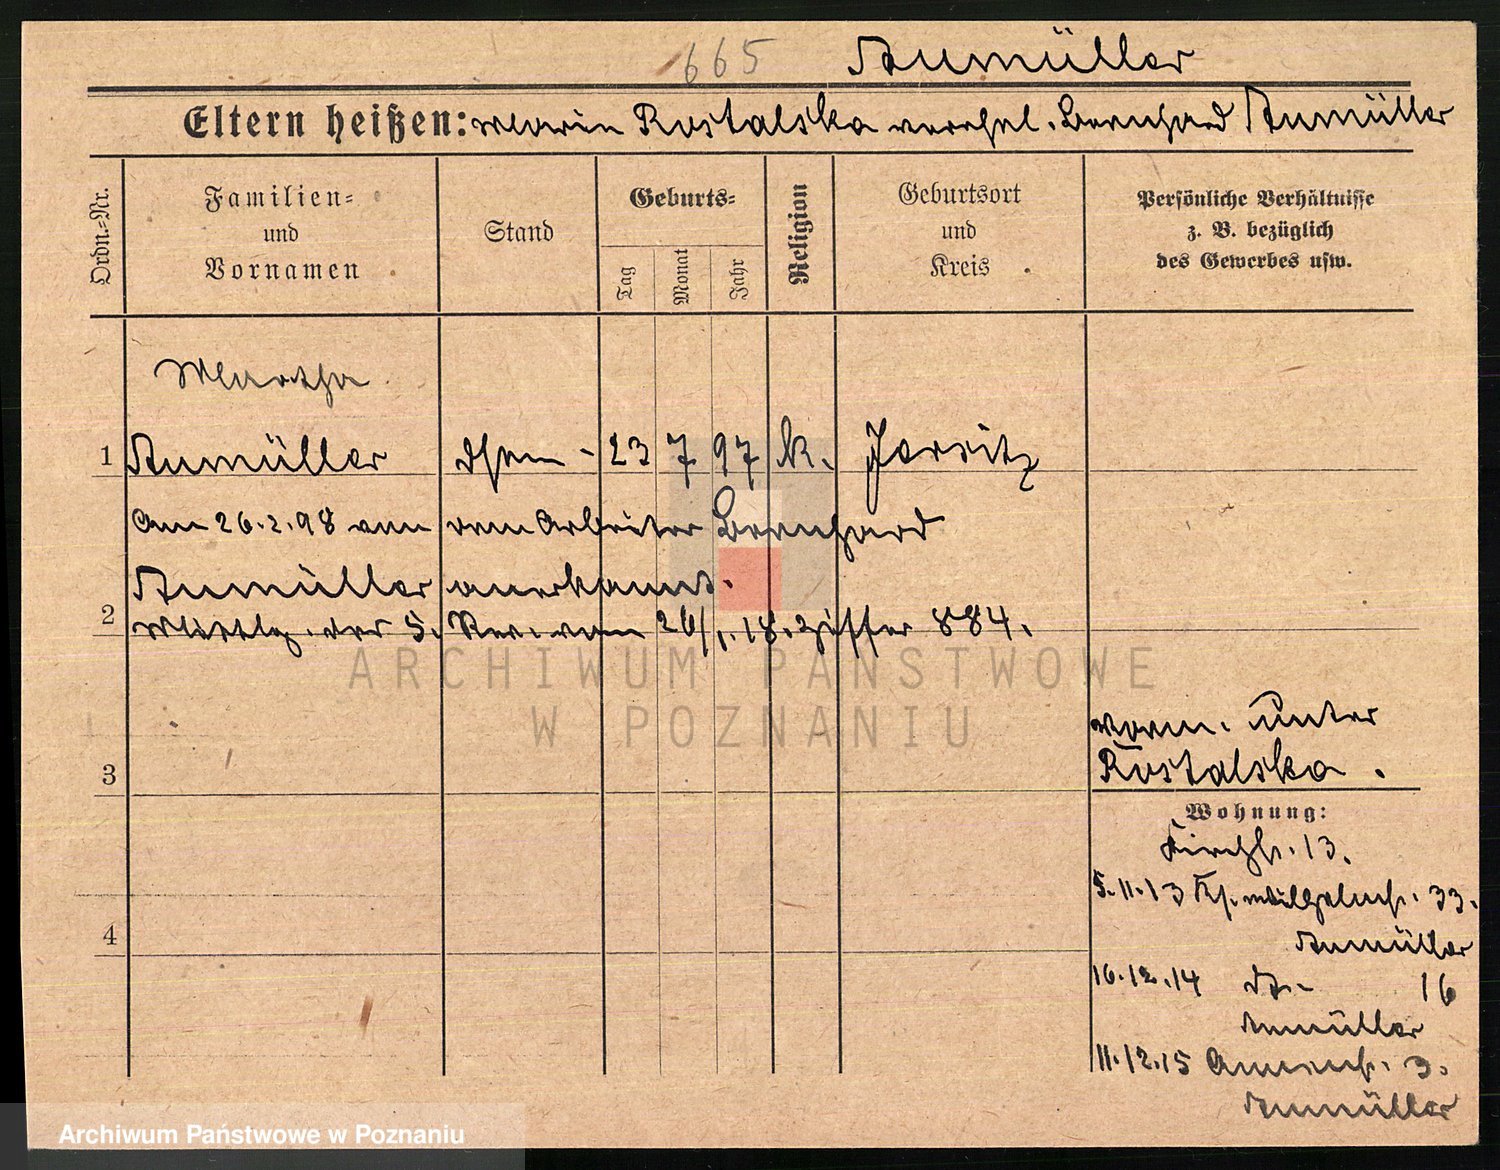 665 Aumüller
Eltern heißen: Maria Rostalska verehel. Bernhard Aumüller
Ordn.-Nr.
Familien-
und
Vornamen
Stand
Geburts-
Tag
Monat
Jahr
Religion
Geburtsort
und
Kreis
Persönliche Verhältnisse
z. B. bezüglich
des Gewerbes usw.
Martha
1 Aumüller 23 7 97 k. Jersitz
Am 26.2.98 von dem Arbeiter Bernhard
Aumüller anerkannt.
2 Mittlg. der 5. Rev. vom 26/1.18. Ziffer 884.
ARCHIWUM PAŃSTWOWE
W POZNANIU
vorm. unter
Rostalska.
3
Wohnung:
Kirchstr. 13.
5.11.13 Kr. Wilhelmstr. 33.
Aumüller
4
16.12.14 do- 16
Aumüller
11.12.15 3.
Aumüller
Archiwum Państwowe w Poznaniu